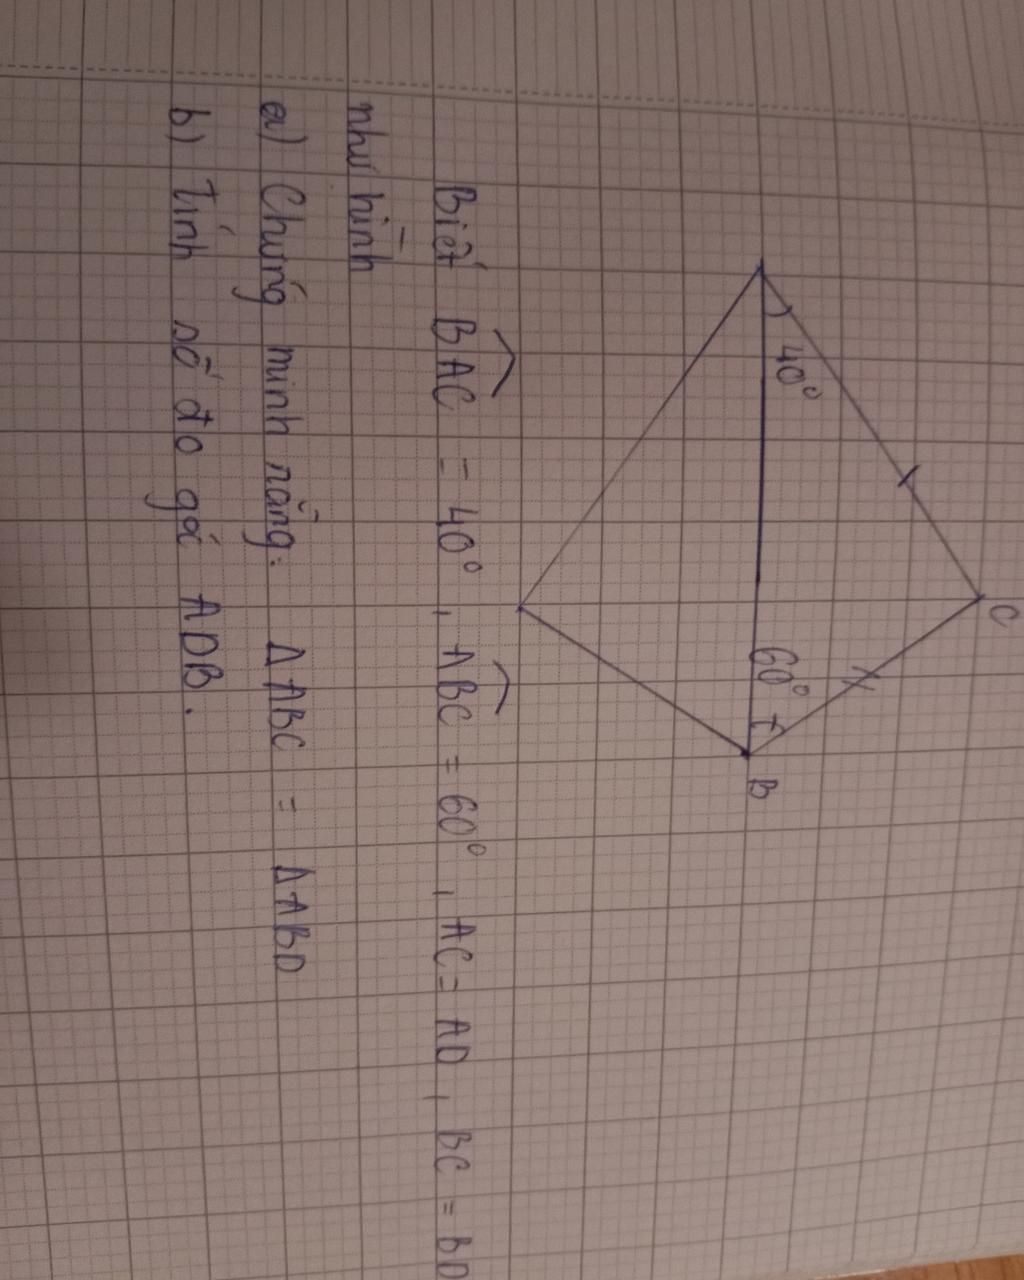 C
40°
60°
B
Biết BAC = 40°, ABC = 60°, AC = AD, BC = BD
như hình
a) Chứng minh rằng: Δ ABC = Δ ABD
b) Tính số đo góc ADB.